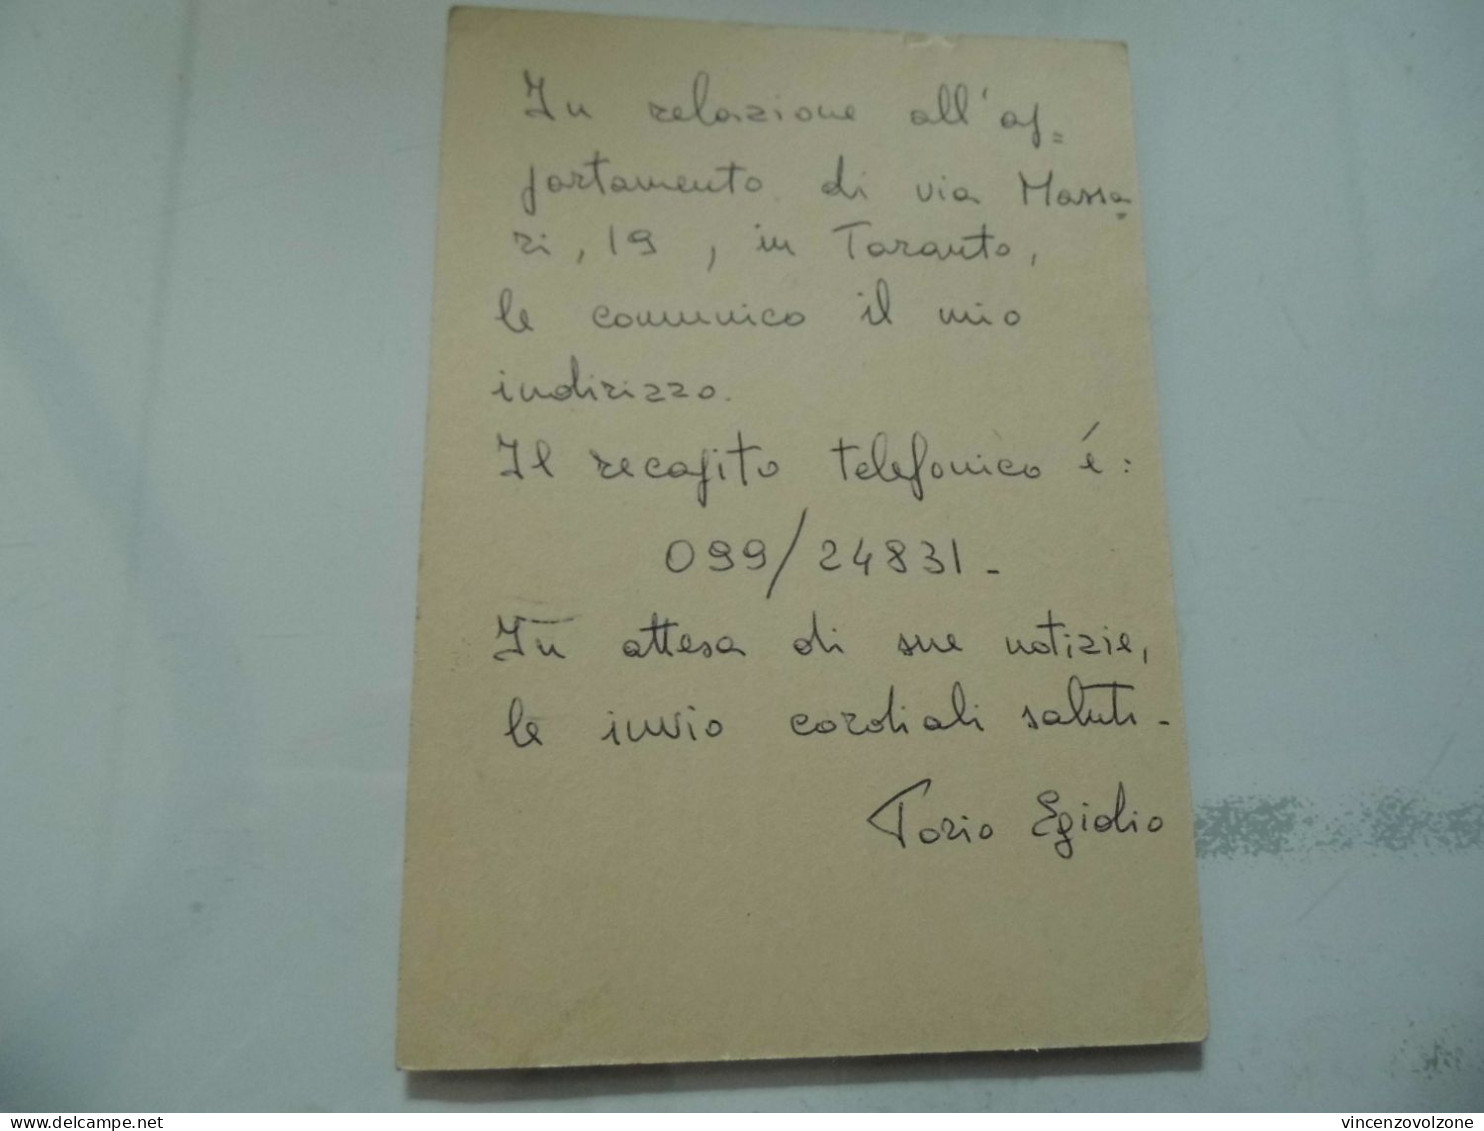 In relazione all'ap=
partamento di via Massa=
ri, 19, in Taranto,
le comunico il mio
indirizzo.
Il recapito telefonico é:
099/24831-
In attesa di sue notizie,
le invio cordiali saluti-
Torio Egidio
vincenzovolzone